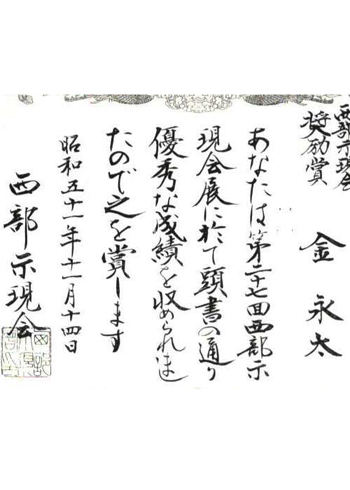 西部示現会
奨励賞
金永太
あなたは第二十七回西部示
現会展に於て頭書の通り
優秀な成績を収められまし
たので之を賞します
昭和五十一年十一月十四日
西部示現会